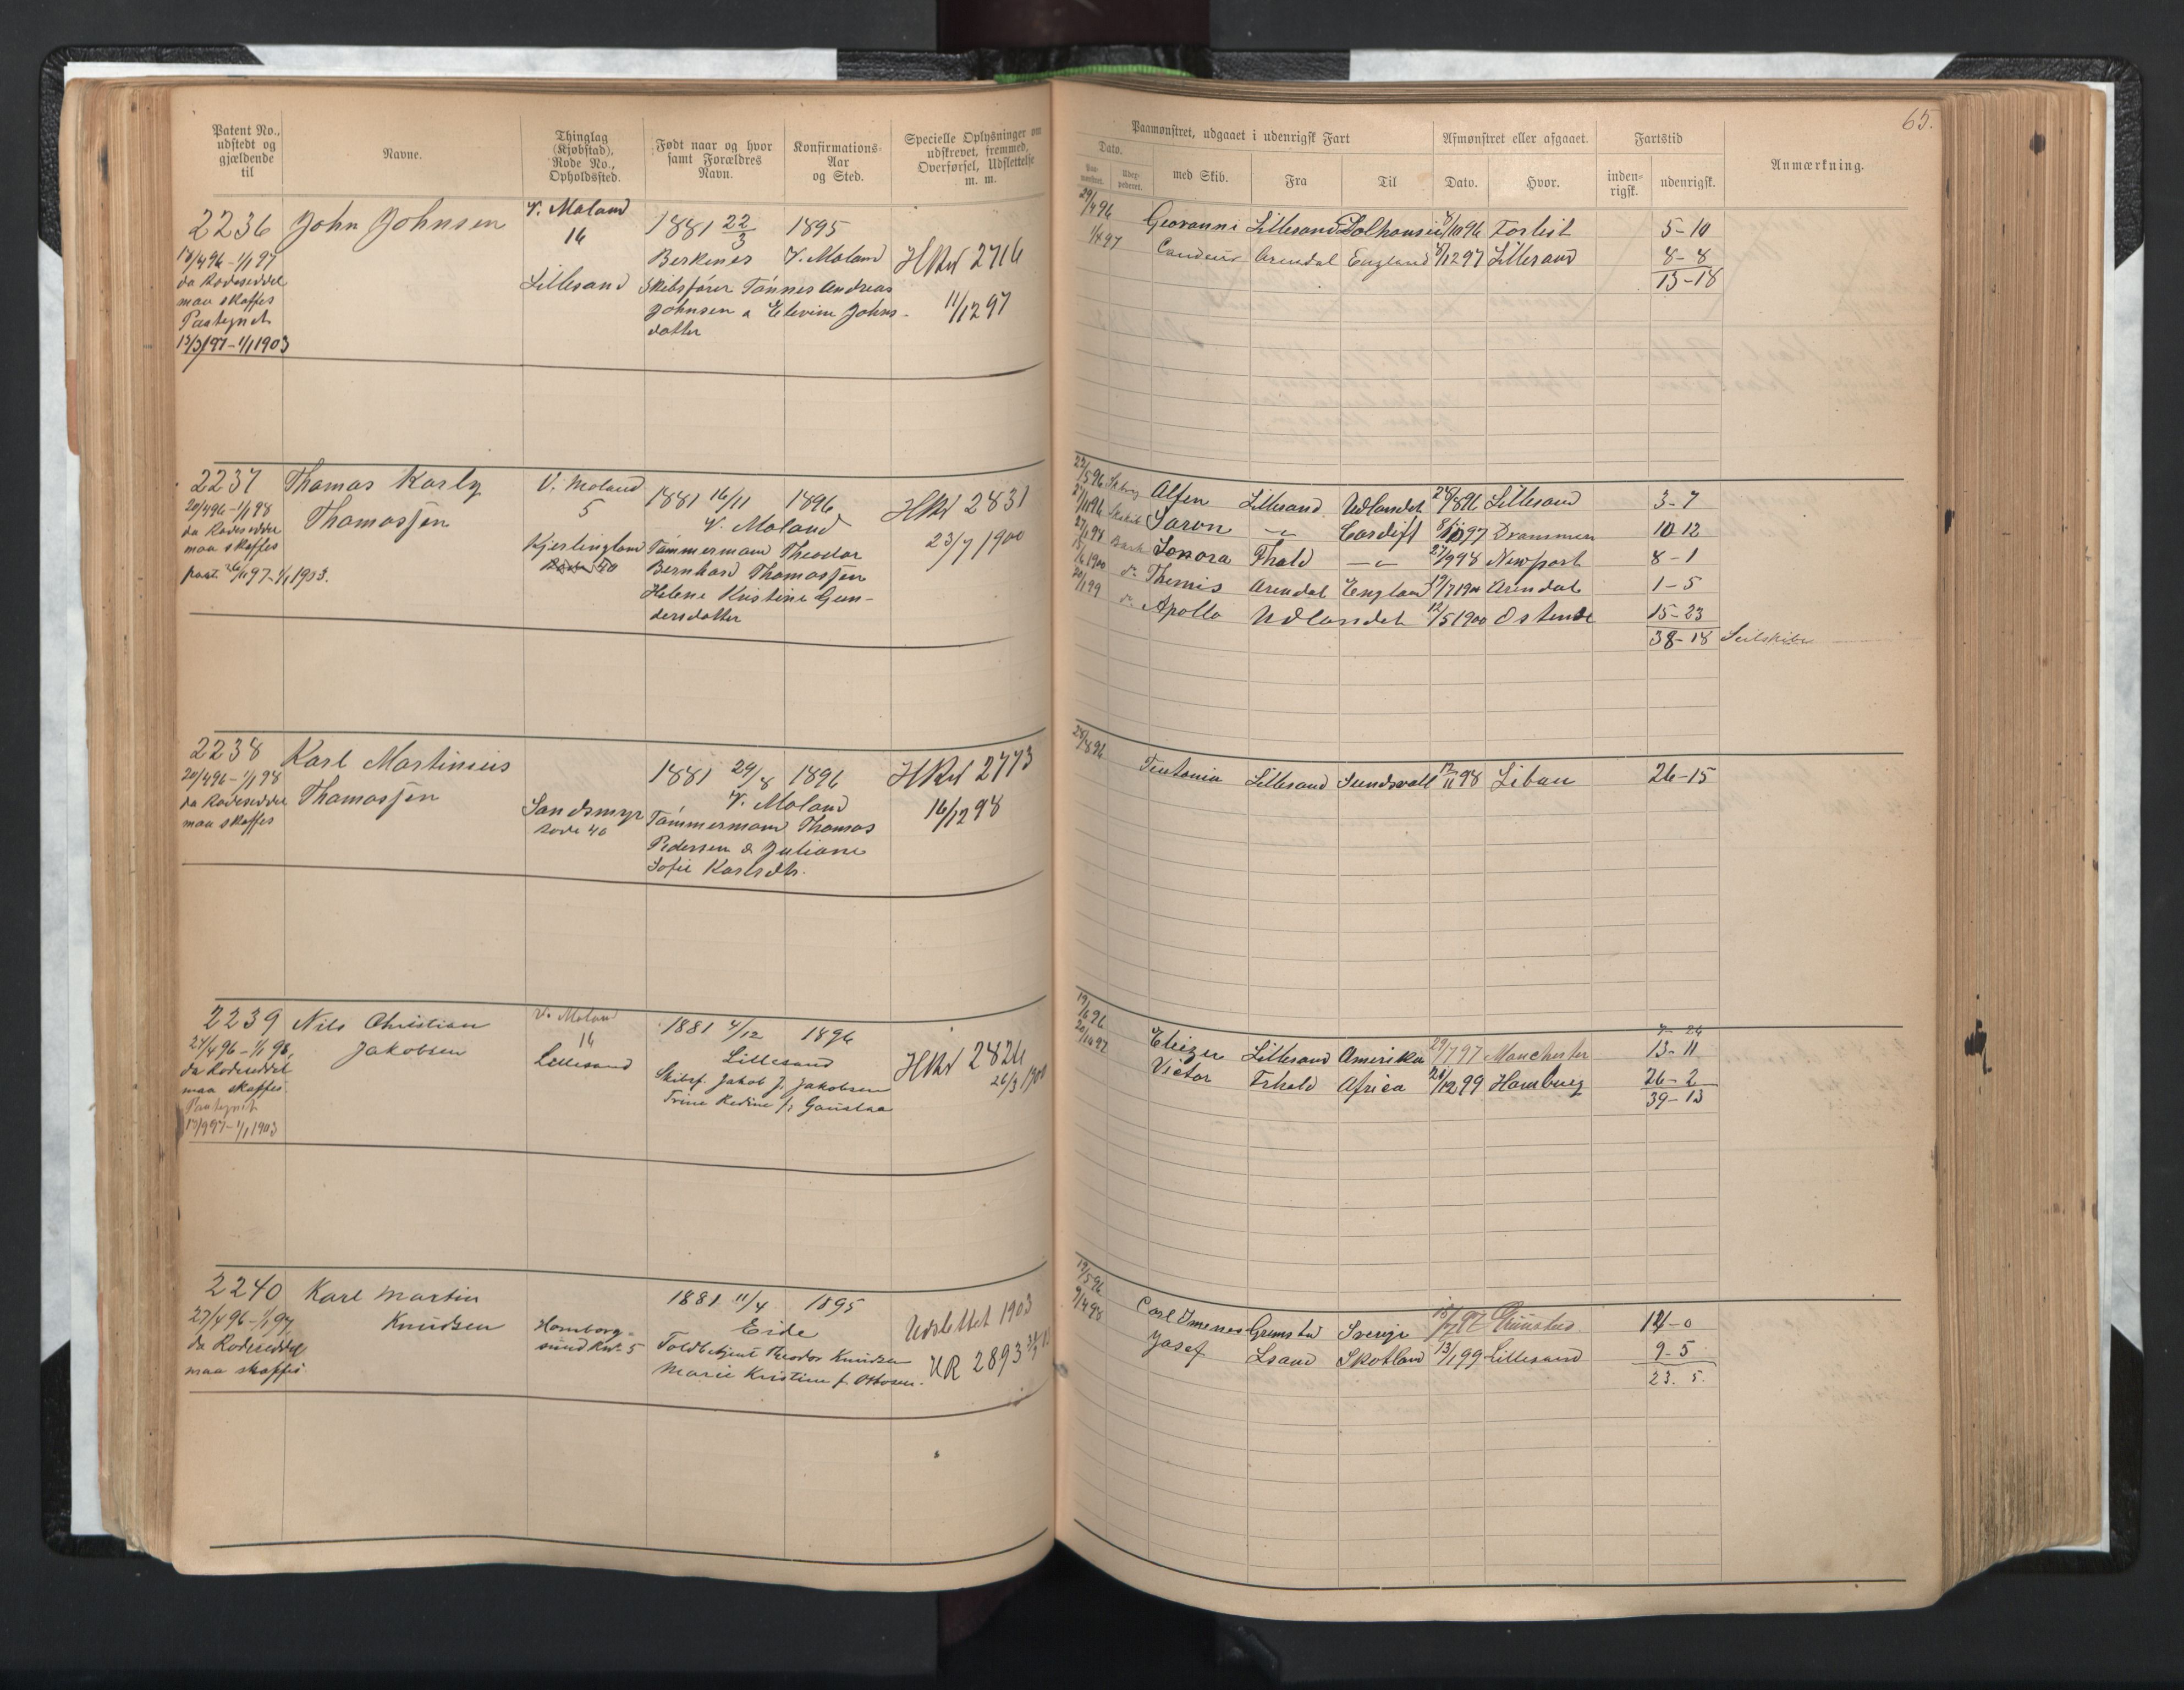 65.
Patent No., udstedt og gjældende til
Navne.
Thinglag (Kjøbstad), Rode No., Opholdssted.
Født naar og hvor samt Forældres Navn.
Konfirmations-Aar og Sted.
Specielle Oplysninger om udskrevet, fremmed, Overførsel, Udslettelse m. m.
Paamønstret, udgaaet i udenrigsk Fart
Dato.
med Skib.
Fra
Til
Afmønstret eller afgaaet.
Dato.
Hvor.
Fartstid
inden-rigsk.
udenrigsk.
Anmærkning.
2236 John Johnsen V. Moland 1881 22/3 1895
16
Berkenes V. Moland HRul 2716
/4 96 - 1/1 97
da Rodeseddel Lillesand Skibsfører Tønnes Andreas
maa skaffes Johnsen & Elevine Johns- 11/12 97
Paategnet datter
13/3 97 - 1/1 1903
29/4 96 Giovanni Lillesand /10 96 Forlist 5-10
1/4 97 Arendal England /12 97 Lillesand 8-8
13-18
2237 Thomas Karly V. Moland 1881 16/11 1896 HRul 2831
20/4 96 - 1/1 98 Thomassen 5 V. Moland
da Rodeseddel
maa skaffes Kjerlingland Tømmermand Theodor 23/7 1900
paat. 26/1 97 - 1/1 1903. Bernhard Thomassen
Helene Kristine Gun-
dersdatter
22/5 96 Alfen Lillesand Udlandet 28/8 96 Lillesand 3-7
Saron -"- Cardiff 97 Drammen 10-12
27/1 98 Bark Sonora Fhald -"- 27/9 98 Newport 8-1
1900 do Themis Arendal England 19/7 1900 Arendal 1-5
20/1 99 do Apollo Udlandet 12/5 1900 Ostende 15-23
38-18 Seilskibe
2238 Karl Martinius 1881 29/8 1896 HRul 2773
20/4 96 - 1/1 98 Thomassen V. Moland
da Rodeseddel Sandsmyr Tømmermand Thomas 16/12 98
maa skaffes Rode 40 Pedersen & Juliane
Sofie Karlsdtr.
28/8 96 Teutonia Lillesand Sundsvall 12/11 98 Libau 26-15
2239 Nils Christian V. Moland 1881 4/12 1896
27/4 96 - 1/1 98, Jakobsen 14 Lillesand HRul 2824
da Rodeseddel Lillesand Skibsf. Jakob J. Jakobsen 26/3 1900
maa skaffes. Trine Redine f.
Paategnet
13/9 97 - 1/1 1903
19/6 96 Eliezer Lillesand Amerika 29/7 97 Manchester 13-11
20/10 97 Victor Frhald Africa /12 99 Hamburg 26-2
39-13
2240 Karl Martin 1881 11/4 1895 Udslettet 1903
27/4 96 - 1/1 97, Knudsen Homborg- Eide
da Rodeseddel sund Rode 5 Toldbetjent Theodor Knudsen HR 2893
maa skaffes. Marie Kristine f. Ottosen.
12/5 96 Carl Grimstad Sverige 97 Grimstad 14-0
9/4 98 Josef Lsand Skotland 13/1 99 Lillesand 9-5
23. 5.